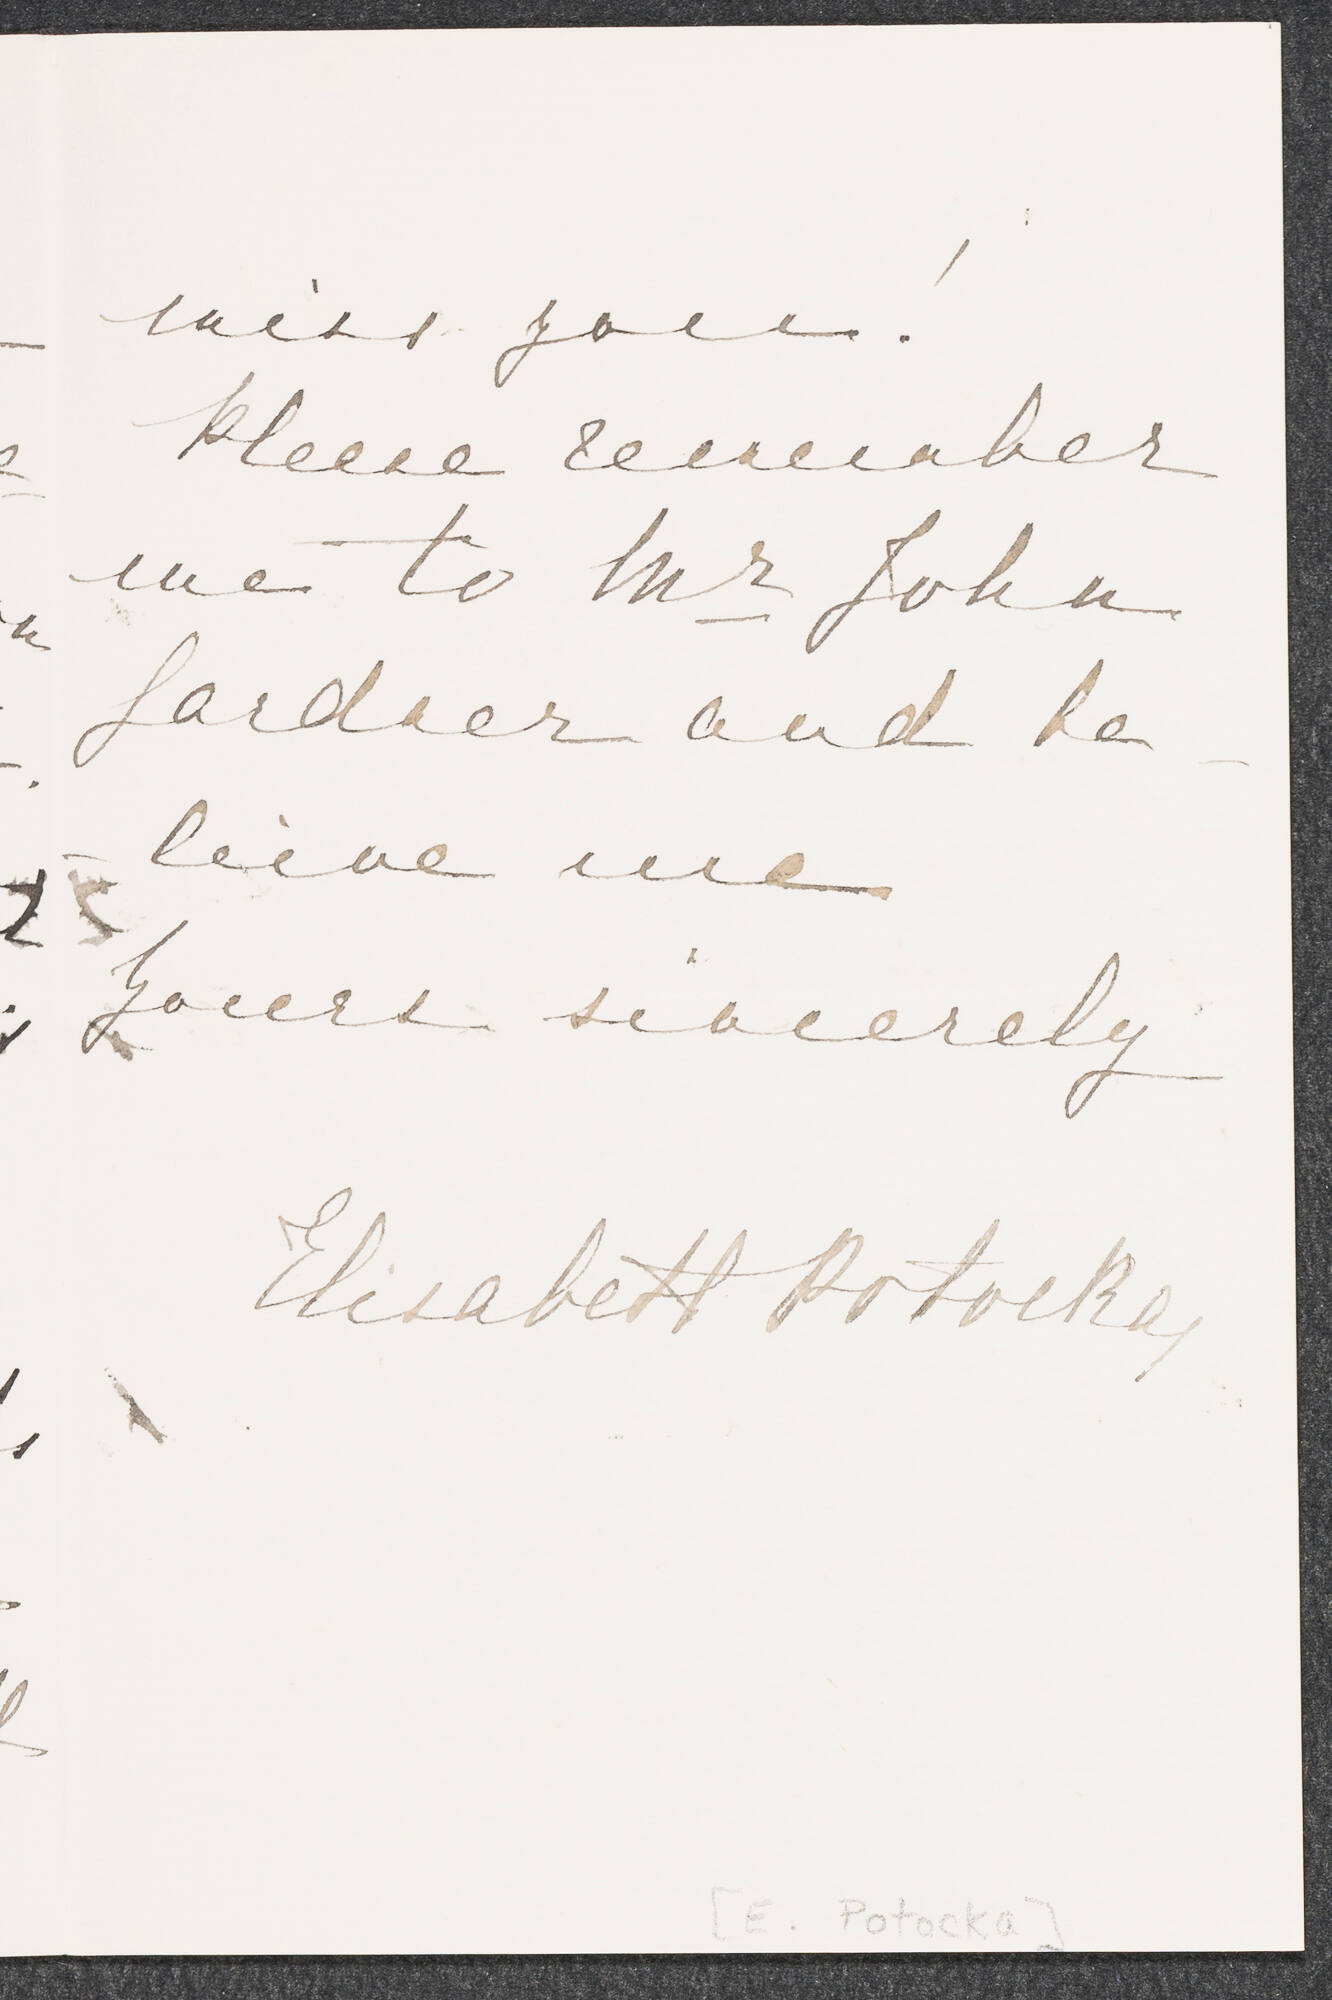 miss you!
Please remember
me to Mr John
Gardner and be-
-leive me
Yours sincerely
Elisabeth Potocka
[E. Potocka]